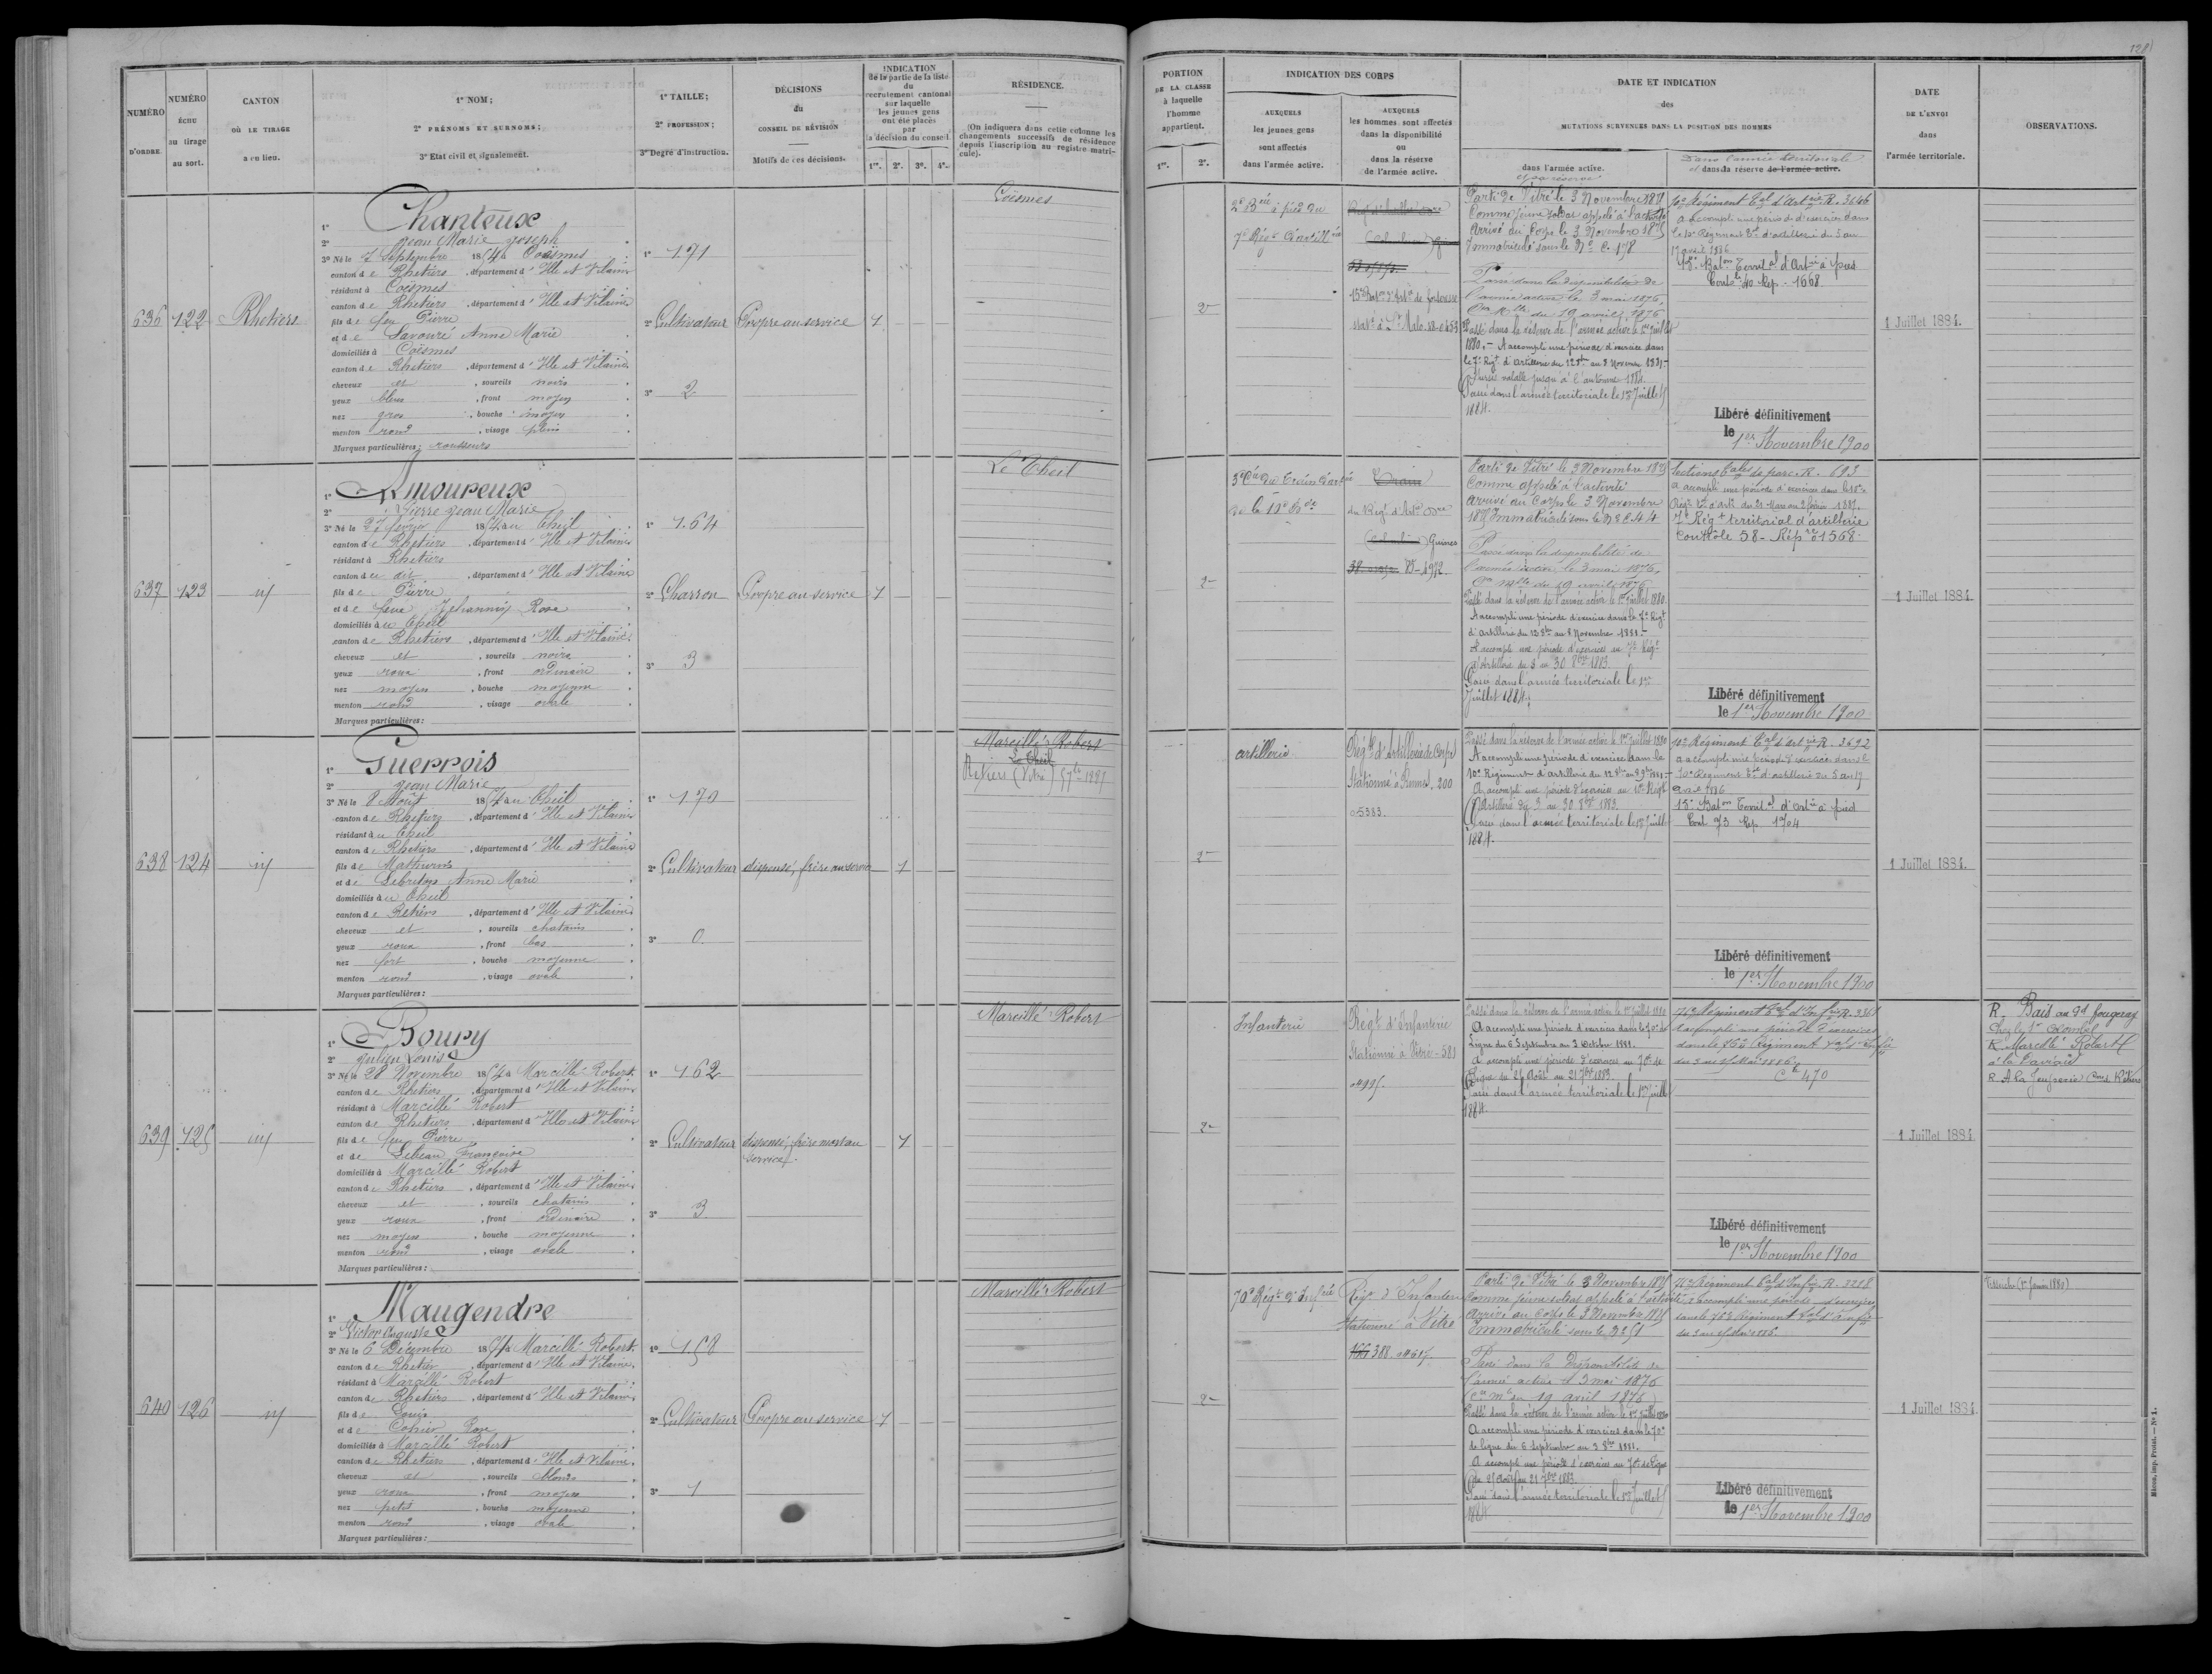 128
NUMÉRO D'ORDRE.
NUMÉRO ÉCHU au tirage au sort.
CANTON OÙ LE TIRAGE a eu lieu.
1° NOM;
2° PRÉNOMS ET SURNOMS;
3° Etat civil et signalement.
1° TAILLE;
2° PROFESSION;
3° Degré d'instruction.
DÉCISIONS
du
CONSEIL DE RÉVISION
Motifs de ces décisions.
INDICATION
de la partie de la liste
du
recrutement cantonal
sur laquelle
les jeunes gens
ont été placés
par
la décision du conseil.
1re. 2e. 3e. 4e.
RÉSIDENCE.
(On indiquera dans cette colonne les
changements successifs de résidence
depuis l'inscription au registre matri-
cule).
PORTION
DE LA CLASSE
à laquelle
l'homme
appartient.
1re. 2e.
INDICATION DES CORPS
AUXQUELS
les jeunes gens
sont affectés
dans l'armée active.
AUXQUELS
les hommes sont affectés
dans la disponibilité
ou
dans la réserve
de l'armée active.
DATE ET INDICATION
des
MUTATIONS SURVENUES DANS LA POSITION DES HOMMES
dans l'armée active.
et sa réserve
Dans l'armée territoriale
et dans la réserve de l'armée active.
DATE
DE L'ENVOI
dans
l'armée territoriale.
OBSERVATIONS.
636 122 Rhetiers
1° Chanteux
2° Jean Marie Joseph
3° Né le 7 Septembre 1854 à Coësmes
canton de Rhetiers, département d'Ille et Vilaine
résidant à Coësmes
canton de Rhetiers, département d'Ille et Vilaine
fils de feu Pierre
et de Savouré Anne Marie
domiciliés à Coësmes
canton de Rhetiers, département d'Ille et Vilaine
cheveux et, sourcils noirs
yeux bleus, front moyen
nez gros, bouche moyen
menton rond, visage plein
Marques particulières: rousseurs
1° 171
2° Cultivateur
3° 2
Propre au service 1
Coësmes
2
2e Bie à pied du
7e Régt d'artillie
15e Baton d'Artie de forteresse
Parti de Vitré le 3 Novembre 1875
Comme jeune soldat appelé à l'activité
Arrivé au Corps le 3 Novembre 1875
Immatriculé sous le No C. 178
Passé dans la disponibilité de
l'armée active le 3 mai 1876,
Con mlle du 19 avril 1876
Passé dans la réserve de l'armée active le 1er juillet
1880. - A accompli une période d'exercices dans
le 7e Régt d'artillerie du 12 8bre au 8 Novembre 1881 -
valable jusqu'à l'automne 1884.
Passé dans l'armée territoriale le 1er Juillet
1884.
10e Régiment Tal d'Artrie R. 3646
a accompli une période d'exercices dans
le 10e Régiment Tal d'artillerie du 5 au
17 avril 1886
15e Baton Territal d'Artie à pied
Contle 40 Rép - 1668
Libéré définitivement
le 1er Novembre 1900
1 Juillet 1884.
637 123 id
1° Amoureux
2° Pierre Jean Marie
3° Né le 27 février 1854 au Theil
canton de Rhetiers, département d'Ille et Vilaine
résidant à Rhetiers
canton du dit, département d'Ille et Vilaine
fils de Pierre
et de feue Jehannin Rose
domiciliés au Theil
canton de Rhetiers, département d'Ille et Vilaine
cheveux et, sourcils noirs
yeux roux, front ordinaire
nez moyen, bouche moyenne
menton rond, visage ovale
Marques particulières:
1° 164
2° Charron
3° 3
Propre au service 1
Le Theil
2
Train
du Régt d'Artie
Guines
Parti de Vitré le 3 Novembre 1875
Comme appelé à l'activité
arrivé au Corps le 3 Novembre
1875 Immatriculé sous le No C. 44
Passé dans la disponibilité de
l'armée active le 3 mai 1876,
Con mlle du 19 avril 1876
Passé dans la réserve de l'armée active le 1er juillet 1880.
A accompli une période d'exercices dans le 7e Régt
d'artillerie du 12 8bre au 8 Novembre 1881 -
A accompli une période d'exercices au 7e Régt
d'artillerie du 3 au 30 8bre 1883.
Passé dans l'armée territoriale le 1er
Juillet 1884.
Sections Tales de parc. R. 693
7e Régt territorial d'artillerie
Contrôle 58 - Répre 1568
Libéré définitivement
le 1er Novembre 1900
1 Juillet 1884
638 124 id
1° Guerrois
2° Jean Marie
3° Né le 8 Août 1854 au Theil
canton de Rhetiers, département d'Ille et Vilaine
résidant au Theil
canton de Rhetiers, département d'Ille et Vilaine
fils de Mathurin
et de Lebreton Anne Marie
domiciliés au Theil
canton de Rhetiers, département d'Ille et Vilaine
cheveux et, sourcils chatains
yeux roux, front bas
nez fort, bouche moyenne
menton rond, visage ovale
Marques particulières:
1° 170
2° Cultivateur
3° 0
dispensé, frère au service 1
Marcillé Robert
Le Theil
2
artillerie
Régt d'Artillerie de Corps
Stationné à Rennes. 200
Passé dans la réserve de l'armée active le 1er juillet 1880
A accompli une période d'exercices dans le
10e Régiment d'artillerie du 12 8bre au 8 9bre 1881 -
A accompli une période d'exercices au 10e Régt
d'Artillerie du 3 au 30 8bre 1883.
Passé dans l'armée territoriale le 1er Juillet
1884.
10e Régiment Tal d'artrie R. 3692
a accompli une période d'exercices dans le
10e Régiment Tal d'artillerie du 5 au 17
avril 1886
15e Baton Territal d'Artie à pied
Cont 73 Rép 1704
Libéré définitivement
le 1er Novembre 1900
1 Juillet 1884.
639 125 id
1° Boury
2° Julien Louis
3° Né le 28 Novembre 1854 à Marcillé Robert
canton de Rhetiers, département d'Ille et Vilaine
résidant à Marcillé Robert
canton de Rhetiers, département d'Ille et Vilaine
fils de feu Pierre
et de Lebeau Françoise
domiciliés à Marcillé Robert
canton de Rhetiers, département d'Ille et Vilaine
cheveux et, sourcils chatains
yeux roux, front ordinaire
nez moyen, bouche moyenne
menton rond, visage ovale
Marques particulières:
1° 162
2° Cultivateur
3° 3
dispensé, frère mort au
service 1
Marcillé Robert
2
Infanterie
Régt d'Infanterie
Stationné à Vitré - 581
Passé dans la réserve de l'armée active le 1er juillet 1880
A accompli une période d'exercices dans le 70e de
Ligne du 6 Septembre au 3 Octobre 1881.
A accompli une période d'exercices au 70e de
Ligne du 25 Août au 21 7bre 1883.
Passé dans l'armée territoriale le 1er Juillet
1884.
76e Régiment Tal d'Infrie R. 3361
a accompli une période d'exercices
dans le 76e Régiment Tal d'Infie
Ct 470
Libéré définitivement
le 1er Novembre 1900
1 Juillet 1884
R. Bais au gd fougeray
R. Marcillé Robert
640 126 id
1° Maugendre
2° Victor Auguste
3° Né le 6 Décembre 1854 à Marcillé Robert
canton de Rhetiers, département d'Ille et Vilaine
résidant à Marcillé Robert
canton de Rhetiers, département d'Ille et Vilaine
fils de Louis
et de Cohier Rose
domiciliés à Marcillé Robert
canton de Rhetiers, département d'Ille et Vilaine
cheveux et, sourcils blonds
yeux roux, front moyen
nez petit, bouche moyenne
menton rond, visage ovale
Marques particulières:
1° 158
2° Cultivateur
3° 1
Propre au service 1
Marcillé Robert
2
70e Régt d'Infie
Régt d'Infanterie
Stationné à Vitré
166 388.
Parti de Vitré le 3 Novembre 1875
Comme jeune soldat appelé à l'activité
Arrivé au Corps le 3 Novembre 1875
Immatriculé sous le No
Passé dans la disponibilité de
l'armée active le 3 mai 1876
(Con mlle du 19 avril 1876)
Passé dans la réserve de l'armée active le 1er Juillet 1880
A accompli une période d'exercices dans le 70e
de ligne du 6 Septembre au 3 8bre 1881.
A accompli une période d'exercices au 70e de Ligne
du 25 Août au 21 7bre 1883.
Passé dans l'armée territoriale le 1er Juillet
1884
76e Régiment Tal d'Infie R. 3258
a accompli une période d'exercices
dans le 76e Régiment Tal d'Infie
Libéré définitivement
le 1er Novembre 1900
1 Juillet 1884